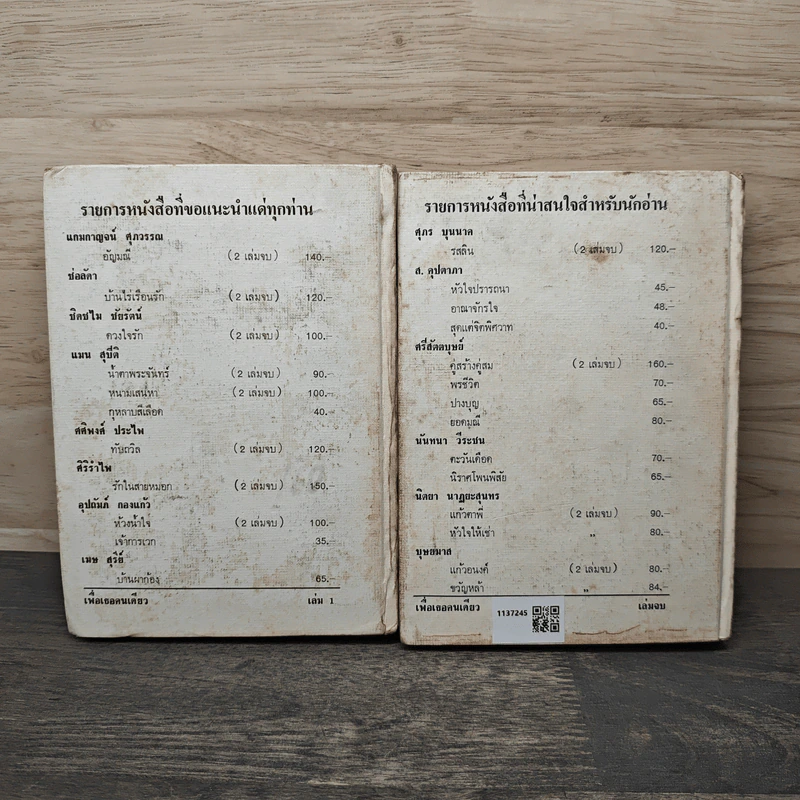 รายการหนังสือที่ขอแนะนำแด่ทุกท่าน
แถมกาญจน์ ศุภวรรณ
อัญมณี (2 เล่มจบ) 140.-
ช่อลัดา
บ้านไร่เรือนรัก (2 เล่มจบ) 120.-
ชิดชไม ชัยรัตน์
ดวงใจรัก (2 เล่มจบ) 100.-
แมน สุปิติ
น้ำตาพระจันทร์ (2 เล่มจบ) 90.-
หนามเสน่หา (2 เล่มจบ) 100.-
กุหลาบสีเลือด 40.-
ศศิพงศ์ ประไพ
ทับถวิล (2 เล่มจบ) 120.-
ศิริรำไพ
รักในสายหมอก (2 เล่มจบ) 150.-
อุปถัมภ์ กองแก้ว
ห้วงน้ำใจ (2 เล่มจบ) 100.-
เจ้าการเวก 35.-
เมษ สุรีย์
บ้านผาก้อง 65.-
เพื่อเธอคนเดียว เล่ม 1
รายการหนังสือที่น่าสนใจสำหรับนักอ่าน
ศุภร บุนนาค
รสลิน (2 เล่มจบ) 120.-
ส. คุปตาภา
หัวใจปรารถนา 45.-
อาณาจักรใจ 48.-
สุดแต่จิตพิศวาท 40.-
ศรีสัตตบุษย์
คู่สร้างคู่สม (2 เล่มจบ) 160.-
พรชีวิต 70.-
ปางบุญ 65.-
ยอดมณี 80.-
นันทนา วีระชน
ตะวันเดือด 70.-
นิราศโพนพิสัย 65.-
นิตยา นาฏยะสุนทร
แก้วตาพี่ (2 เล่มจบ) 90.-
หัวใจให้เช่า " 80.-
บุษยมาส
แก้วอนงค์ (2 เล่มจบ) 80.-
ขวัญหล้า " 84.-
เพื่อเธอคนเดียว เล่มจบ
1137245